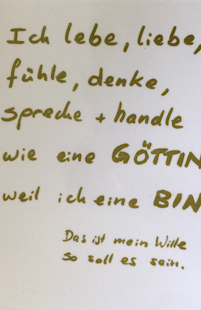 Ich lebe, liebe,
fühle, denke,
spreche + handle
wie eine GÖTTIN
weil ich eine BIN
Das ist mein Wille
so soll es sein.